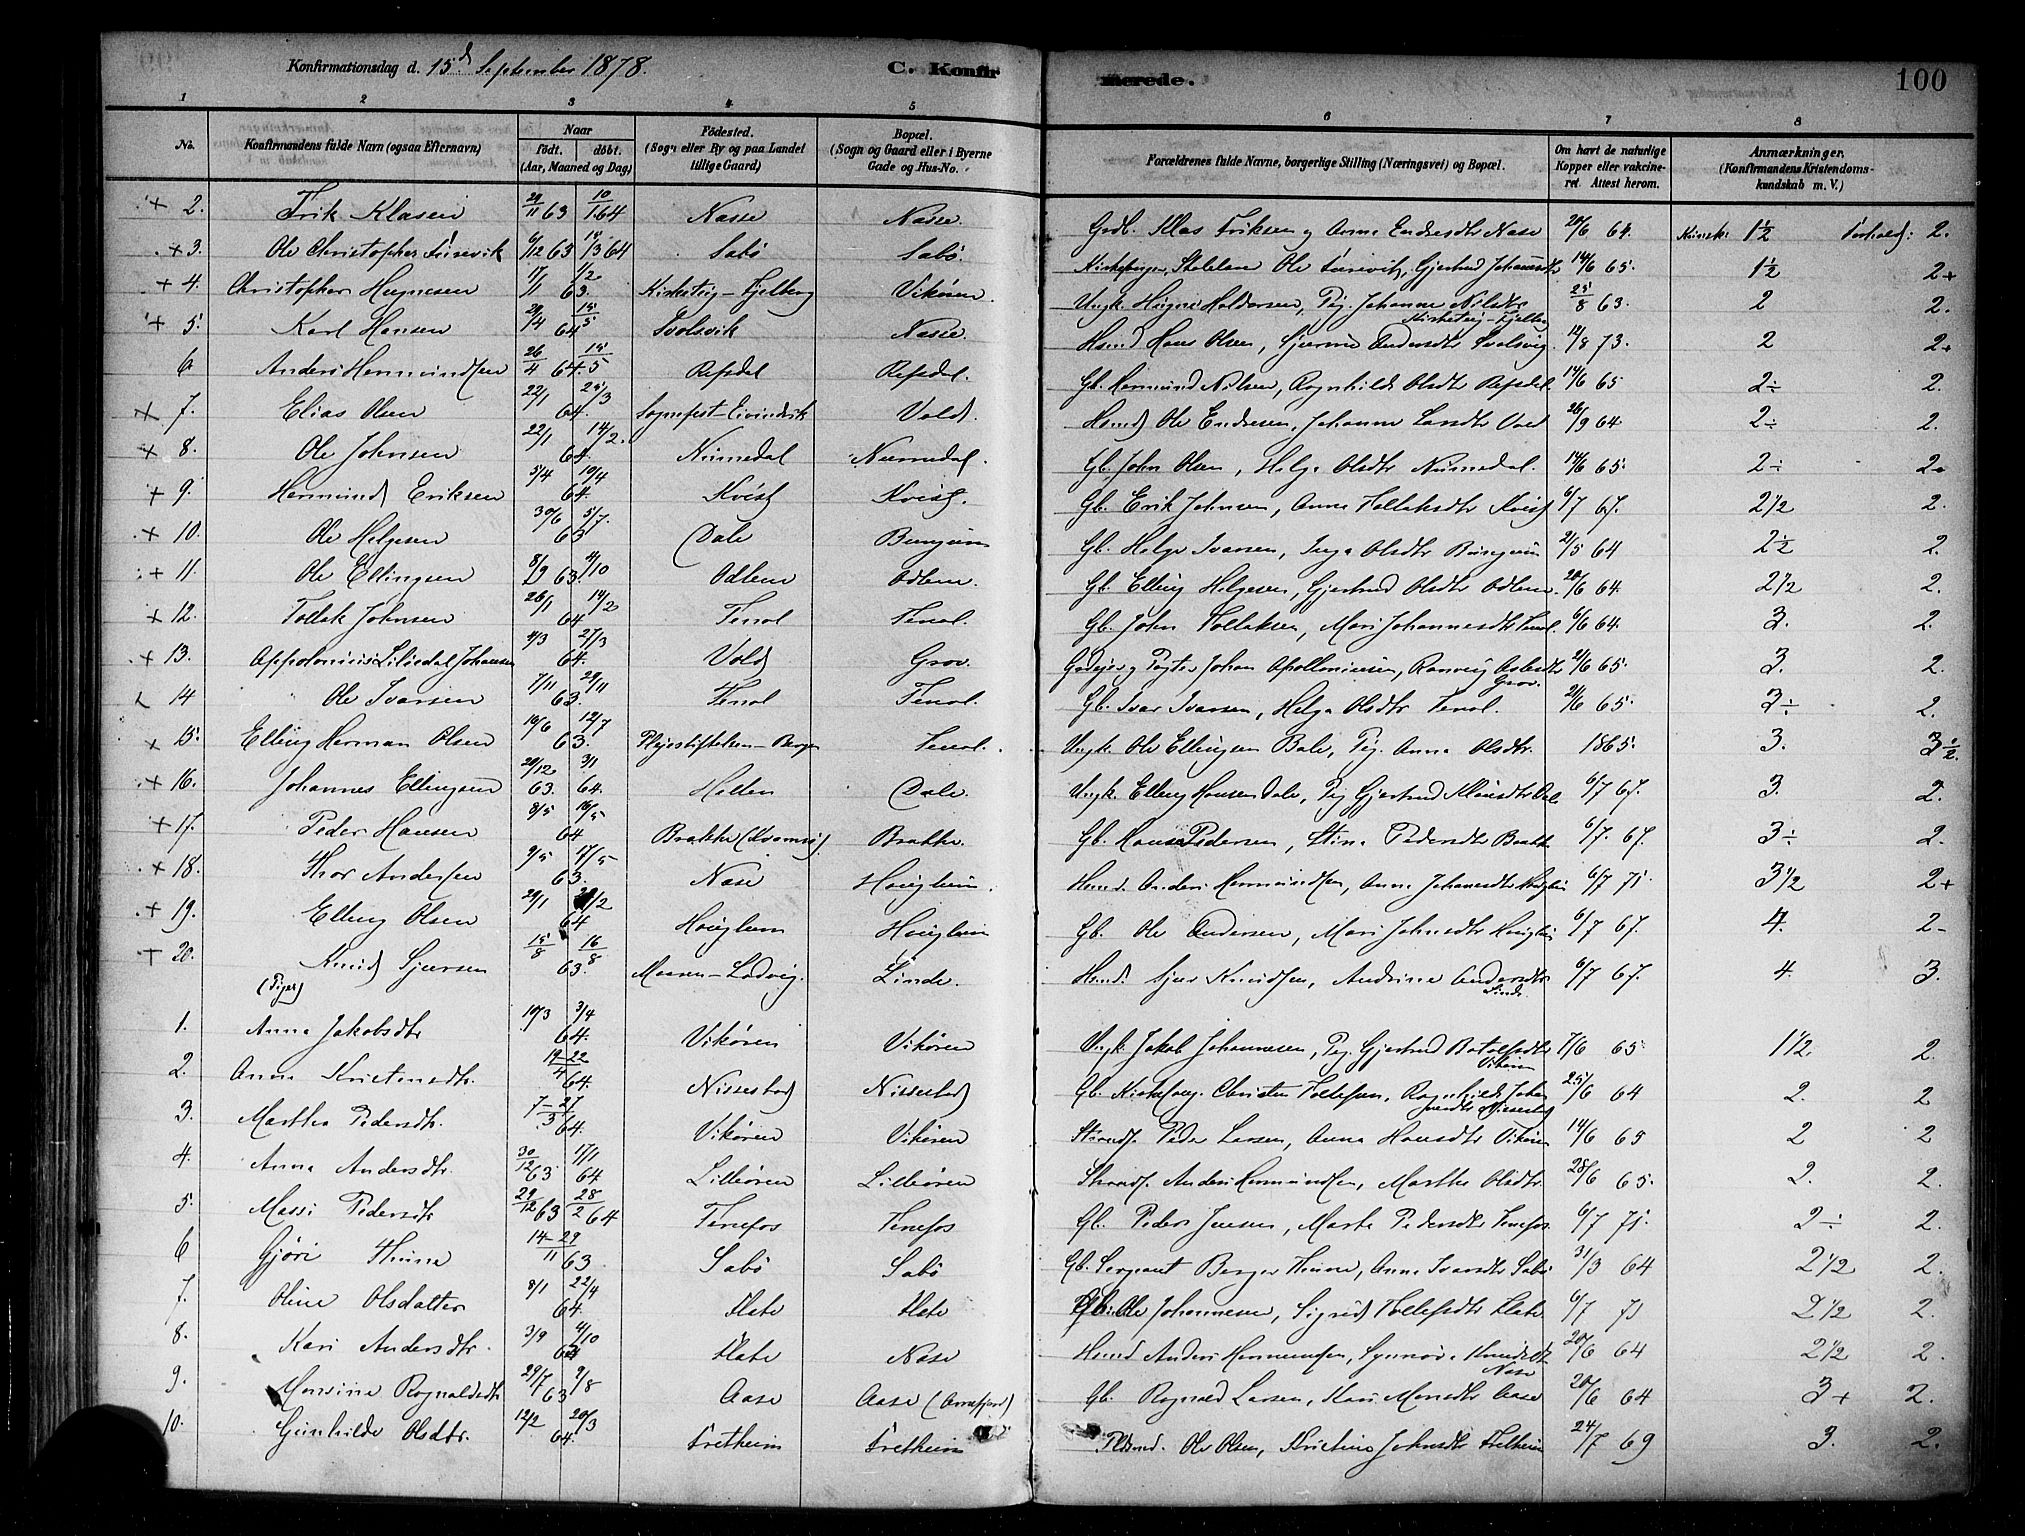 Konfirmationsdag d. 15d September 1878. C. Konfirmerede. 100
1 2 3 4 5 6 7 8
No. Konfirmandens fulde Navn (ogsaa Efternavn) Naar födt. döbt. (Aar, Maaned og Dag) Födested. (Sogn eller By og paa Landet tillige Gaard) Bopæl. (Sogn og Gaard eller i Byerne Gade og Hus-No. Forældrenes fulde Navne, borgerlige Stilling (Næringsvei) og Bopæl. Om havt de naturlige Kopper eller vakcineret. Attest herom. Anmærkninger, (Konfirmandens Kristendomskundskab m. V.)
+ 2. Erik Klasen 29/11 63 10/1 64 Nasse Nasse. Klas Eriksen og Anna Endresdtr Nase 20/6 64. 1½ Forhold: 2.
+ 3. Ole Christopher 6/12 63 /3 64 Sabö Sabö. Kirkesanger, Ole Gjertrud Johannsdtr 14/6 65. 1½ 2+
+ 4. Christopher Hognesen 17/1 1/2 63. Kirketeig-Fjelberg Vikören. Ungk. Hogne Haldorsen, Pig. Johanne Nilsdtr Kirketeig-Fjelberg 25/8 63. 2 2.
+ 5. Karl Hansen 29/4 15/5 64 Svolsvik Nasse. Hsmd Hans Olsen, Andersdtr Svolsvig. 12/8 73. 2 2+
6 Anders Hermundsen 26/4 64. 15/5 Refsdal Refsdal. Gb. Hermund Nilsen, Ragnhilde Olsdtr Refsdal 14/6 65 2÷ 2.
+ 7. Elias Olsen 22/1 25/3 64. Sognefest-Eivindvik Vold. Hsmd Ole Endresen, Johanne Larsdtr Vold 26/9 64. 2÷ 2.
+ 8. Ole Johnsen 22/1 14/2. 64. Numedal Numedal. Gb. John Olsen, Helga Olsdtr Numedal. 14/6 65. 2÷ 2.
+ 9. Hermund Eriksen 5/4 10/4 64. Kvist Kvist. Gb. Erik Johnsen, Anna Tollaksdtr Kvist 6/7 67. 2½ 2.
+ 10. Ole Helgesen 30/6 5/7. 63 Dale Bungum Gb. Helge Ivarsen, Inga Olsdtr Bungum 21/5 64 2½ 2.
+ 11. Ole Ellingsen 8/9 63. 4/10 Odlum Odlum. Gb. Elling Helgesen, Gjertrud Olsdtr Odlum. 20/6 64. 2½ 2.
+ 12. Tollak Johnsen 26/1 14/2 64 Fenol Fenol. Gb. John Tollaksen, Mari Johannesdtr Fenol. 6/6 64. 3. 2.
+ 13. Appolonius Liliedal Johansen /3 27/3 64. Vold Grov. Johan Apolloniussen, Ranveig Grov. 21/6 65. 3. 2.
14 Ole Ivarsen 7/11 29/11 63. Fenol Fenol. Gb. Ivar Ivarsen, Helga Olsdtr Fenol. 21/6 65. 3÷ 2.
+ 15. Elling Herman Olsen 16/6 12/7 63. Plejestiftelsen-Bergen Fenol. Ungk. Ole Ellingsen Bale, Pig. Anna Olsdtr. 1865. 3. 3½.
+ 16. Johannes Ellingsen 29/12 63. 3/1 64. Hellen Dale. Ungk. Elling Hansen Dale, Pig Gjertrud 6/7 67. 3. 2.
+ 17. Peder Hansen 8/5 16/5 64 Brekke (Kvamsö). Brekke. Gb. Hans Pedersen, Stina Pedersdtr Brekke 6/7. 67. 3÷ 2.
+ 18. Thor Andersen 9/5 17/5 63. Nase Houglum. Hsmd. Anders Hermundsen, Anna Johannesdtr Houglum 6/7 71 3½ 2+
+ 19. Elling Olsen 29/1 /2 64 Houglum Houglum Gb. Ole Andersen, Mari Johnsdtr Houglum 6/7 67. 4. 2-
+ 20. Knud Sjursen 15/8 16/8 63. Maaren-Ladvig. Linde. Hsmd. Sjur Knudsen, Andrine Andersdtr Linde 6/7 67. 4. 3.
(Piger)
1. Anna Jakobsdtr 19/3 3/4 64. Vikören Vikören Ungk. Jakob Johannesen, Pig. Gjertrud Botolfsdtr Vikören 7/6 65 1½ 2.
2. Anna Kristensdtr. 19-22/4 64. Nissestad Nissestad Gb. Kirkesang. Christen Tollefsen, Ragnhild Johannesdtr Nissestad 25/6 64 2. 2
3. Martha Pedersdtr. 7-27/3 64. Vikören Vikören Strands. Peder Larsen, Anna Hansdtr Vikören 14/6 65 2 2
4. Anna Andersdtr. 30/12 63 17/1 64 Lilleören Lilleören Strands. Anders Hermundsen, Martha Olsdtr. 28/6 65. 2. 2.
5. Massi Pedersdtr 29/12 63 28/2 64 Fenefos Fenefos Gb. Peder Jensen, Marta Pedersdtr Fenefos 6/7 71. 2÷ 2.
6 Gjöri Thune 14-29/11 63 Sabö Sabö Gb. Sergeant Berger Thune, Anna Ivarsdtr Sabö 31/3 64 2½ 2.
7. Oline Olsdatter 8/1 22/4 64. Flete Flete Ole Johannesen, Sigrid Tollefsdtr Flete 6/7 71 2½ 2.
8. Kari Andersdtr. 3/9 4/10 Flete Nase Hsmd Anders Hermundsen, Synnöve Knudsdtr Nase 20/6 64 2½ 2.
9. Monsine Rognaldsdtr. 29/7 9/8 63 Aase Aase (Arnefjord) Gb. Rognald Larsen, Kari Monsdtr Aase 20/6 64 3+ 2.
10. Gunhilde Olsdtr. 12/2 20/3 64. Fretheim Fretheim Plsmd. Ole Olsen, Kristine Johnsdtr Fretheim 24/7 69 3. 2.